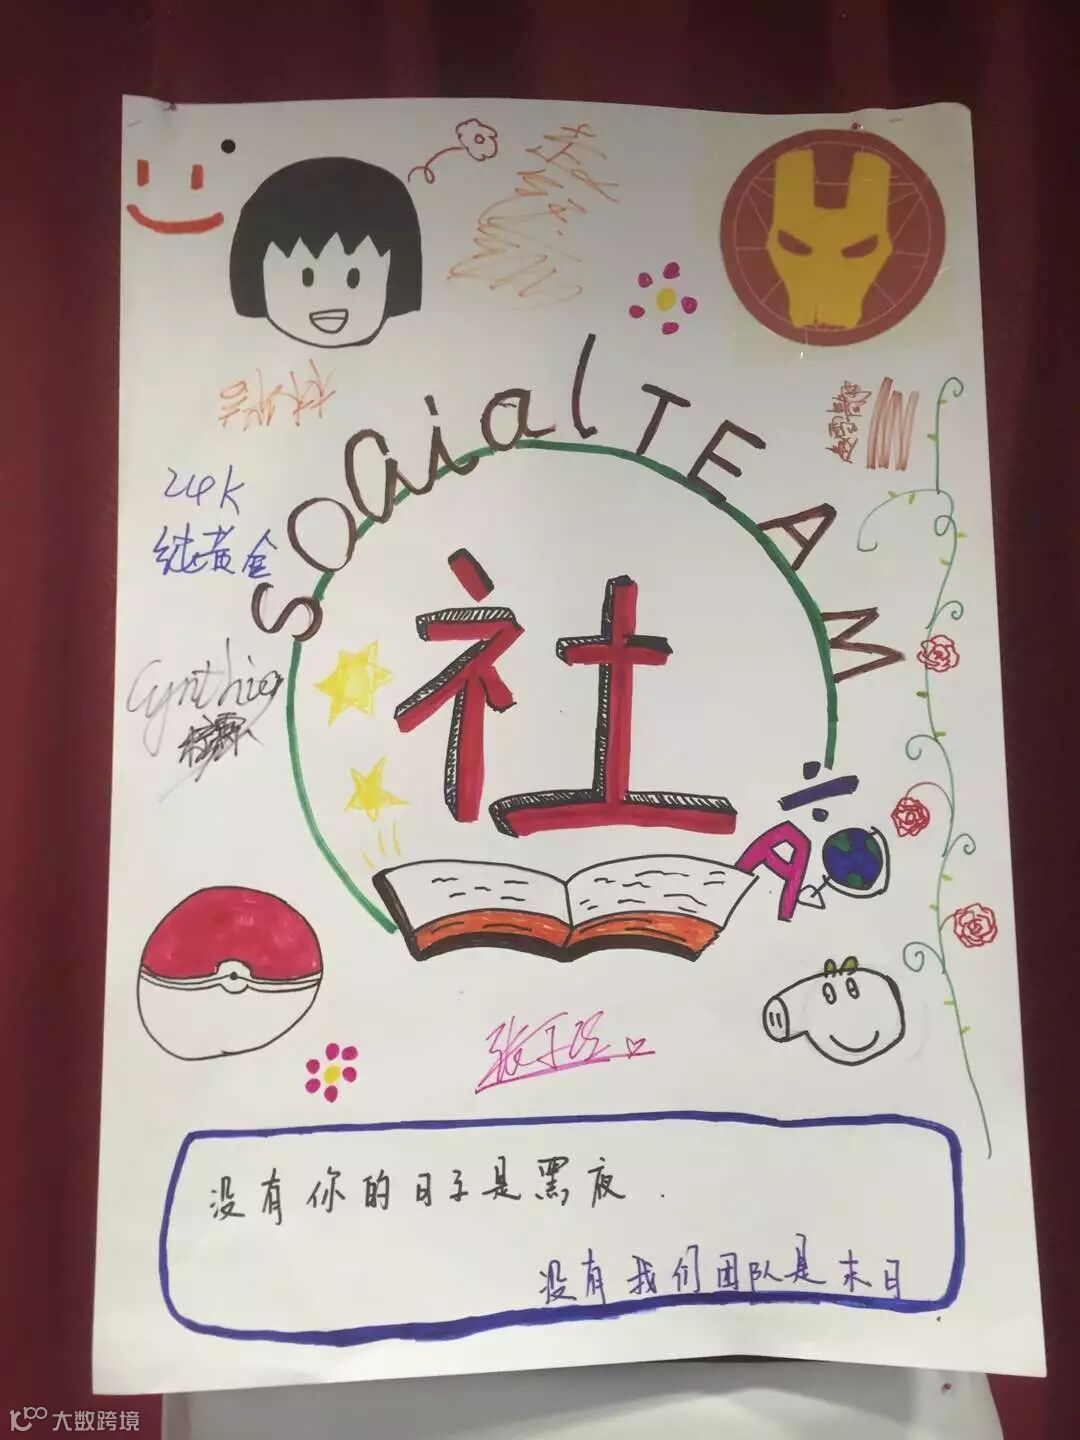 SOCial TEAM
24K
纯黄金
Cynthia
社
没有你的日子是黑夜.
没有我们团队是末日
大数跨境